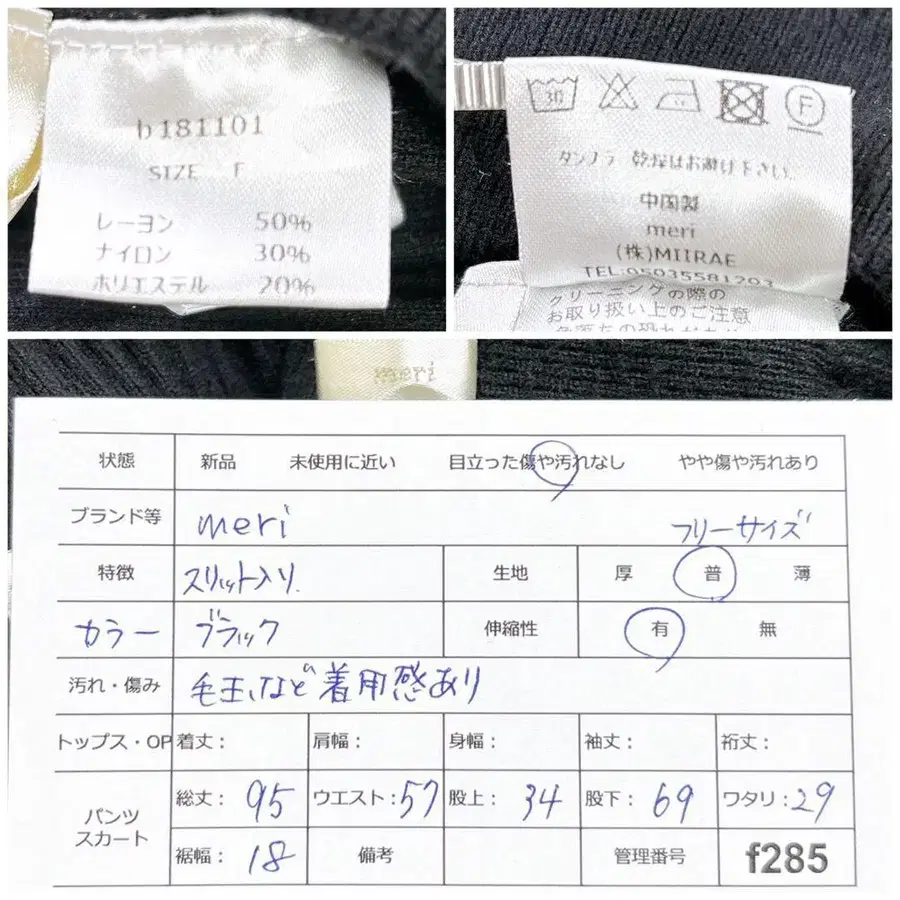 b181101
SIZE F
レーヨン 50%
ナイロン 30%
ポリエステル 20%
30
F
タンブラー乾燥はお避け下さい。
中国製
meri
(株)MIIRAE
TEL:05035581293
クリーニングの際の
お取り扱い上のご注意
meri
状態 新品 未使用に近い 目立った傷や汚れなし やや傷や汚れあり
ブランド等 meri フリーサイズ
特徴 スリット入り. 生地 厚 普 薄
カラー ブラック 伸縮性 有 無
汚れ・傷み 毛玉など着用感あり
トップス・OP 着丈: 肩幅: 身幅: 袖丈: 裄丈:
パンツ スカート
総丈: 95 ウエスト: 57 股上: 34 股下: 69 ワタリ: 29
裾幅: 18 備考 管理番号 f285